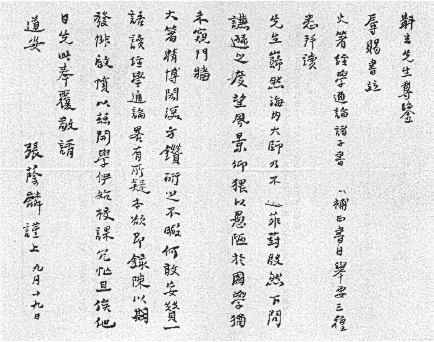 斠玄先生尊鑒
辱賜書並
大著經學通論諸子書目補正書目舉要三種
悉拜讀
先生巋然海内大師乃不遺葑菲殷然下問
謙逊之度望風景仰猥以愚陋於國學獨
未窺門牆
大著精博閎深方鑽研之不暇何敢妄贊一
語讀經學通論畧有所疑本欲即錄陳以期
發悱啟憤以茲開學伊始校課冗忙且俟他
日先此奉覆敬請
道安
張蔭麟謹上 九月十九日